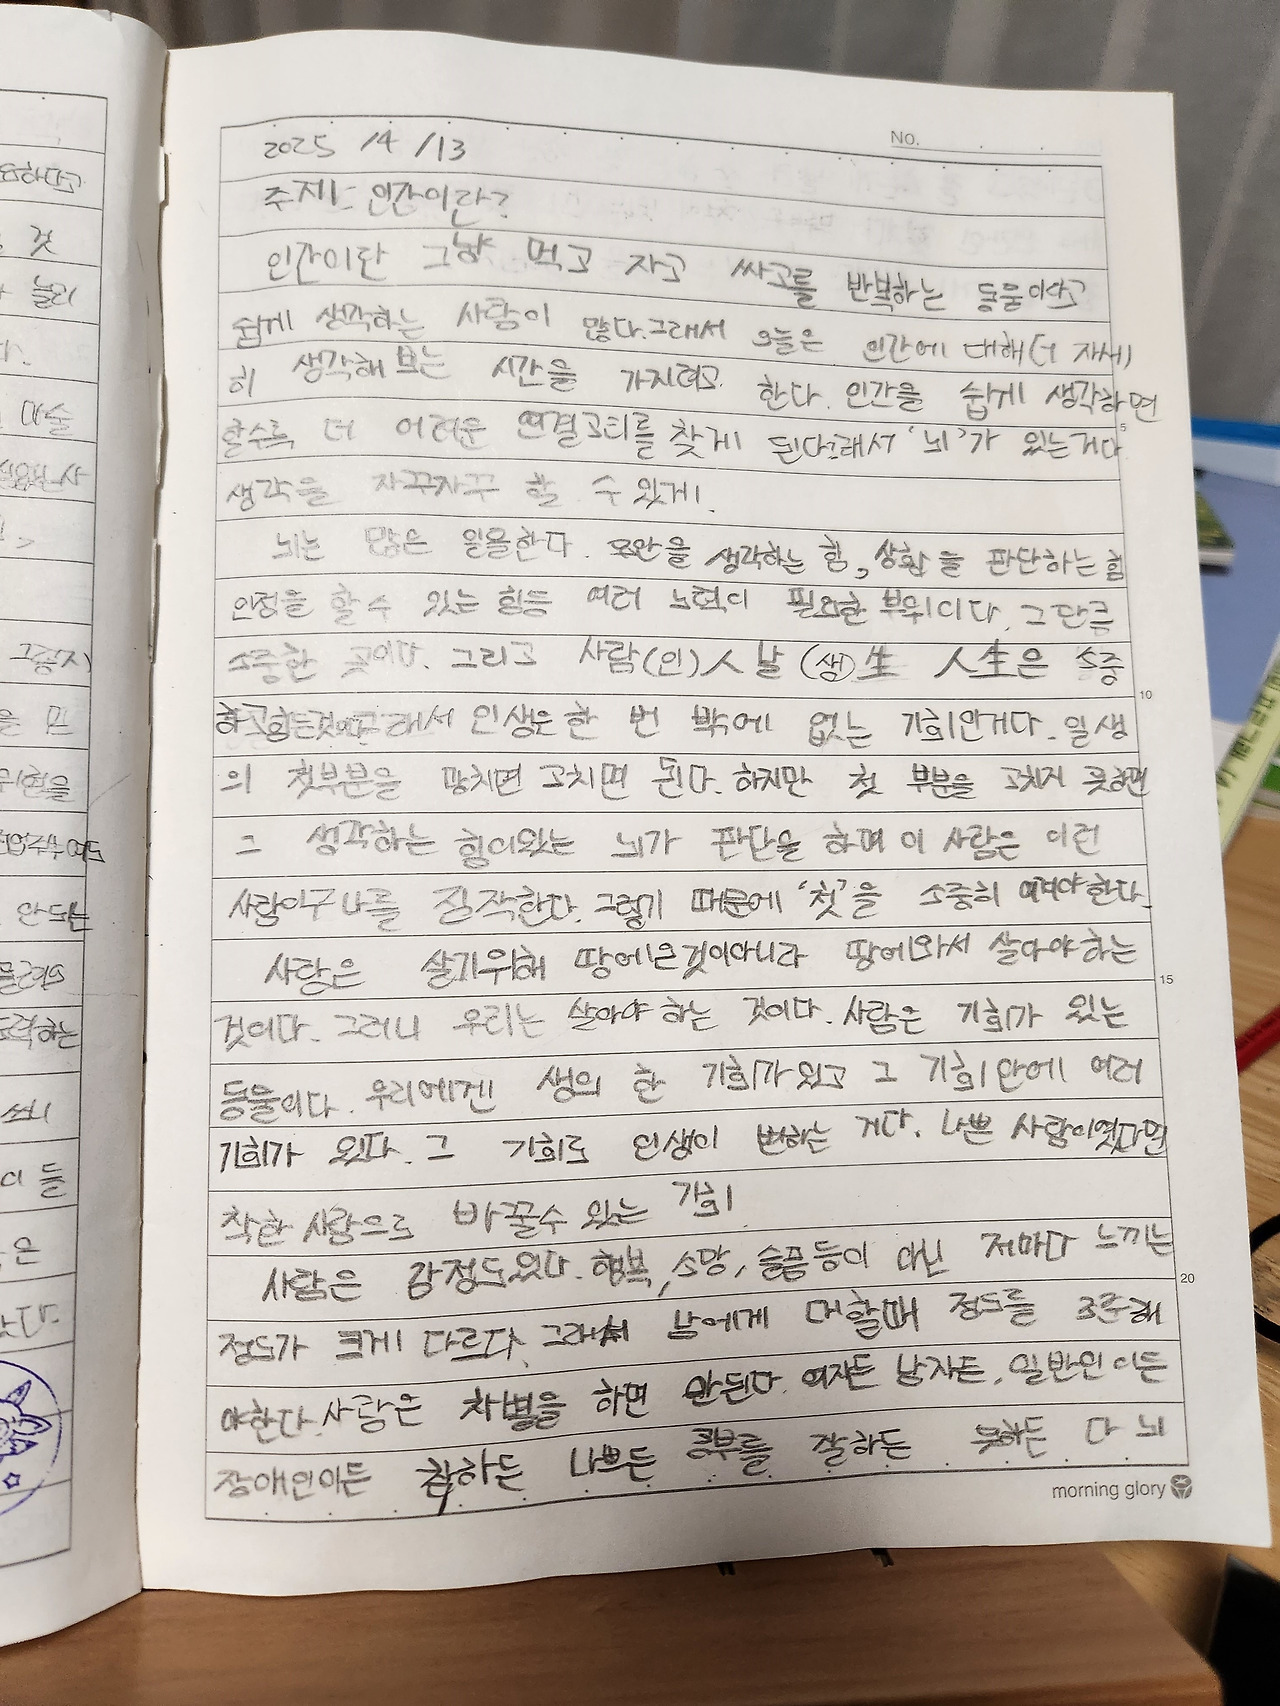 2025 /4 /13
No.
주제:- 인간이란?
인간이란 그냥 먹고 자고 싸고를 반복하는 동물이라고
쉽게 생각하는 사람이 많다.그래서 오늘은 인간에 대해(더 자세)
히 생각해 보는 시간을 가지려고 한다. 인간을 쉽게 생각하면
할수록 더 어려운 연결고리를 찾게 된다그래서 '뇌'가 있는거다
생각을 자꾸자꾸 할 수 있게!
뇌는 많은 일을한다. 생각하는 힘, 상황을 판단하는 힘
인정을 할 수 있는 힘등 여러 노력이 필요한 부위이다. 그만큼
소중한 곳이다. 그리고 사람(인)人 날 (생)生 人生은 소중
하고 그래서 인생은 한 번 밖에 없는 기회인거다. 일생
의 첫부분을 망치면 고치면 된다. 하지만 첫 부분을 고치지 못하면
그 생각하는 힘이있는 뇌가 판단을 하며 이 사람은 이런
사람이구나를 짐작한다. 그렇기 때문에 '첫'을 소중히 여겨야한다.
사람은 살기위해 땅에온것이아니라 땅에와서 살아야하는
것이다. 그러니 우리는 살아야 하는 것이다. 사람은 기회가 있는
동물이다. 우리에겐 생의 한 기회가있고 그 기회안에 여러
기회가 있다. 그 기회로 인생이 변하는 거다. 나쁜 사람이였다면
착한 사람으로 바꿀수 있는 기회
사람은 감정도있다. 행복, 소망, 슬픔등이 아닌 저마다 느끼는
정도가 크게 다르다. 그래서 남에게 대할때 정도를 조준해
야한다. 사람은 차별을 하면 안된다. 여자든 남자든, 일반인이든
장애인이든 착하든 나쁘든 공부를 잘하든 못하든 다 뇌
morning glory
5
10
15
20